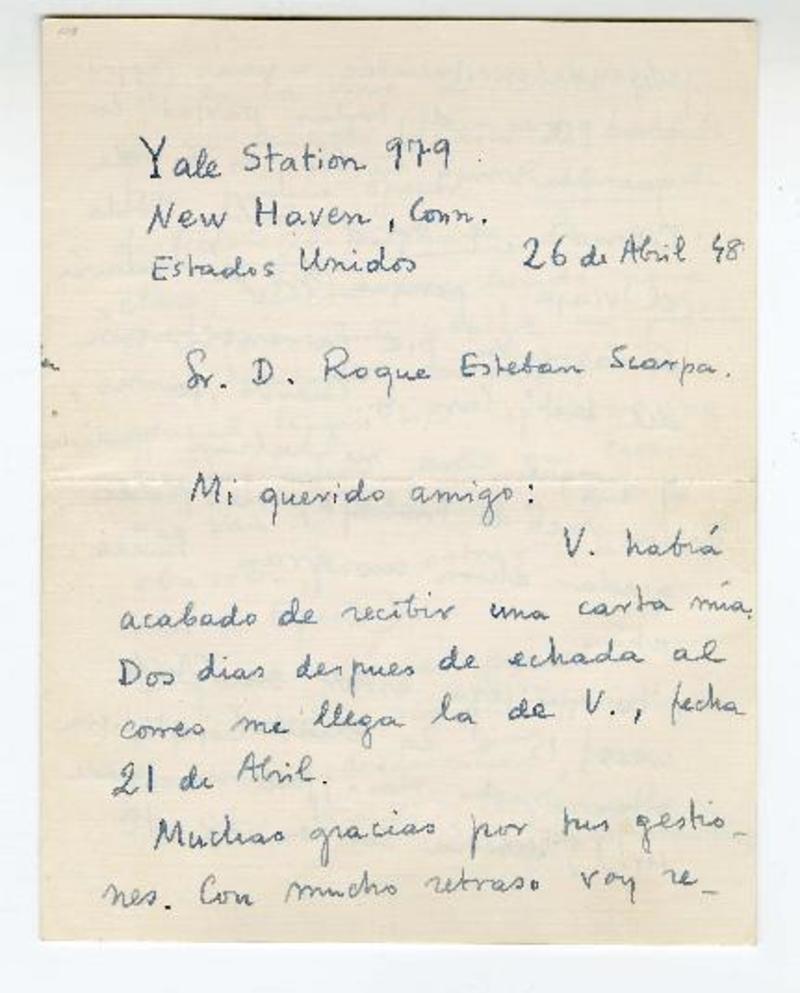 Yale Station 979
New Haven, Conn.
Estados Unidos
26 de Abril 48
Sr. D. Roque Esteban Scarpa.
Mi querido amigo:
V. habrá
acabado de recibir una carta mía.
Dos dias despues de echada al
correo me llega la de V., fecha
21 de Abril.
Muchas gracias por sus gestio-
nes. Con mucho retraso voy re-